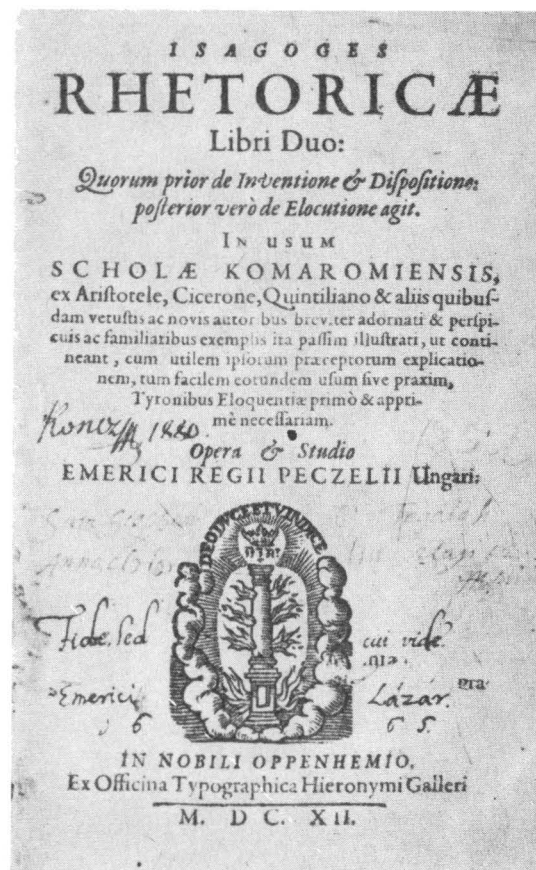 ISAGOGES
RHETORICÆ
Libri Duo:
Quorum prior de Inventione & Dispositione:
posterior verò de Elocutione agit.
IN USUM
SCHOLÆ KOMAROMIENSIS,
ex Aristotele, Cicerone, Quintiliano & aliis quibus-
dam vetustis ac novis autor bus brev.ter adornati & perspi-
cuis ac familiaribus exemplis ita passim illustrati, ut conti-
neant, cum utilem ipsorum præceptorum explicatio-
nem, tum facilem eorundem usum sive praxim,
Tyronibus Eloquentiæ primò & appri-
mè necessariam.
Opera & Studio
EMERICI REGII PECZELII Ungari:
DEO DUCE ET VINDICE
Fide, sed cui vide.
Emerici Lázár.
6 6 5.
IN NOBILI OPPENHEMIO,
Ex Officina Typographica Hieronymi Galleri
M. DC. XII.